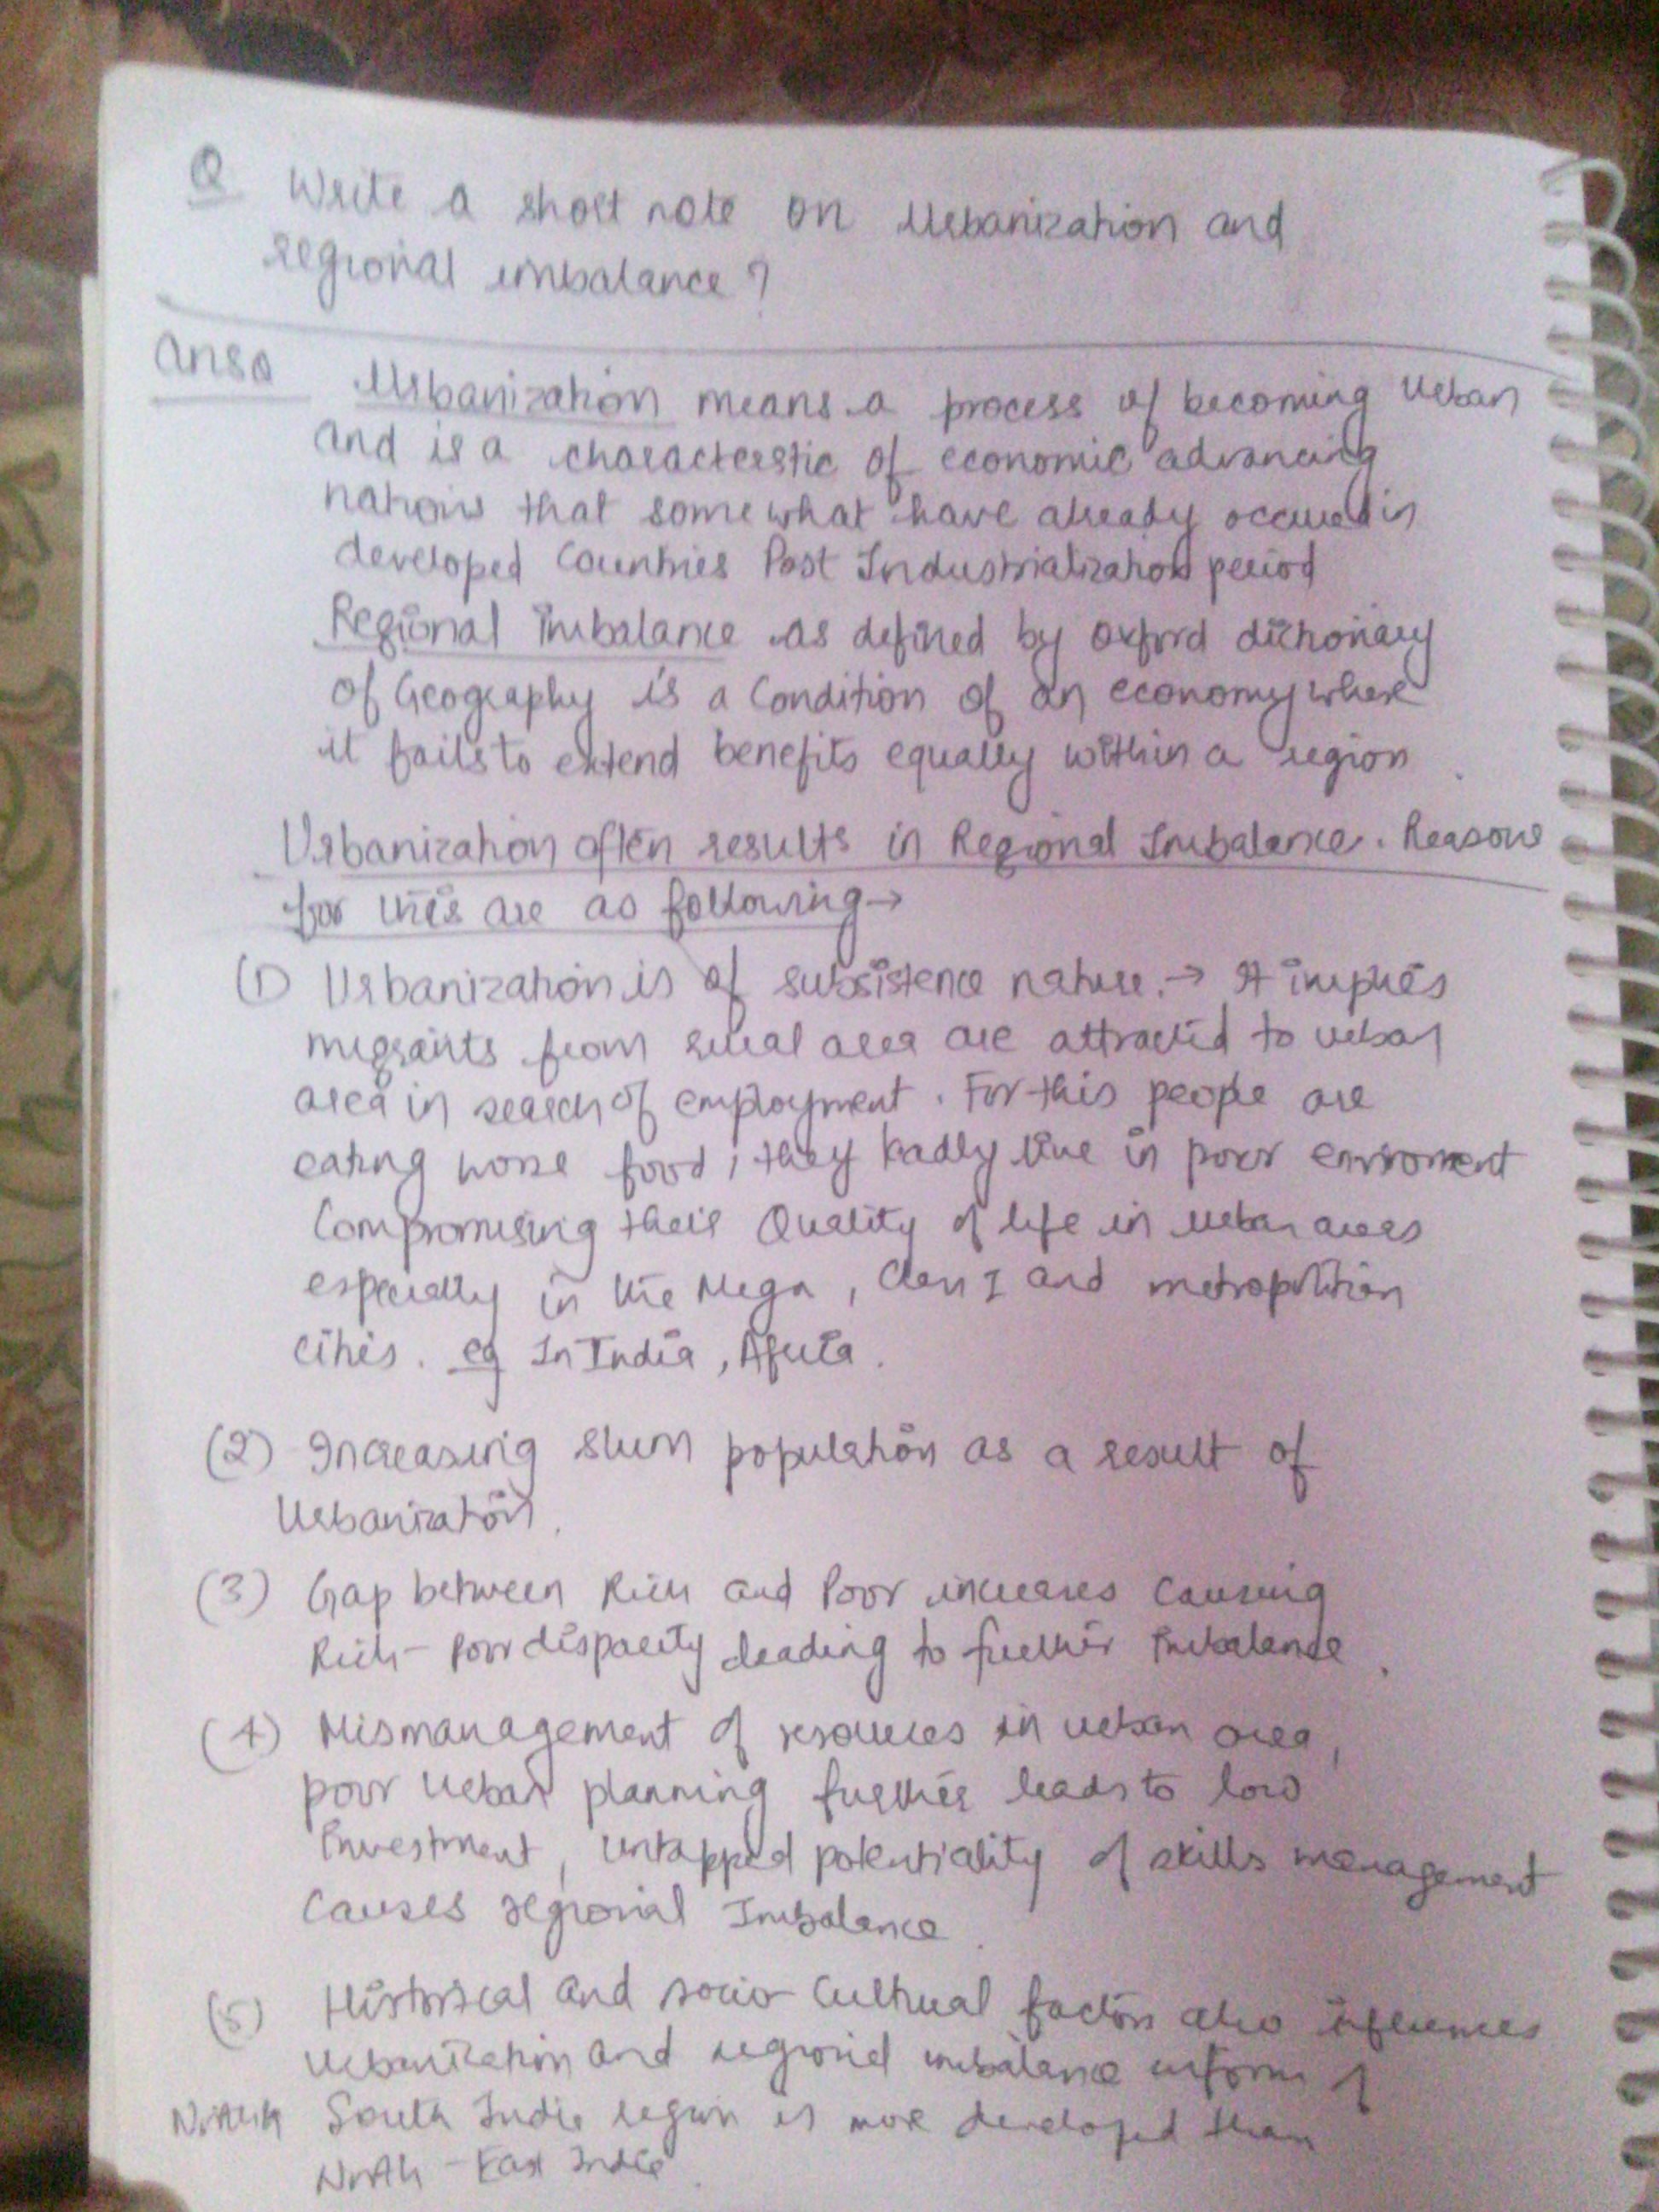 Q Write a short note on Urbanization and
regional imbalance?
Ans. Urbanization means a process of becoming urban
and is a characterstic of economic advancing
nations that somewhat have already occured in
developed countries Post Industrialization period
Regional Imbalance as defined by oxford dictionary
of Geography is a condition of an economy where
it fails to extend benefits equally within a region.
Urbanization often results in Regional Imbalance. Reasons
for this are as following→
(1) Urbanization is of subsistence nature.→ It implies
migrants from rural area are attracted to urban
area in search of employment. For this people are
eating worse food, they badly live in poor enviroment
Compromising their Quality of life in urban areas
especially in the Mega, Class I and metropolitian
cities. eg In India, Africa.
(2) Increasing slum population as a result of
Urbanization.
(3) Gap between Rich and Poor increases causing
Rich-Poor disparity leading to further Imbalance.
(4) Mismanagement of resources in urban area,
poor urban planning further leads to low
Investment, untapped potentiality of skills management
causes regional Imbalance.
(5) Historical and socio-cultural factors also influences
urbanization and regional imbalance in form of
South India region is more developed than
North-East India.